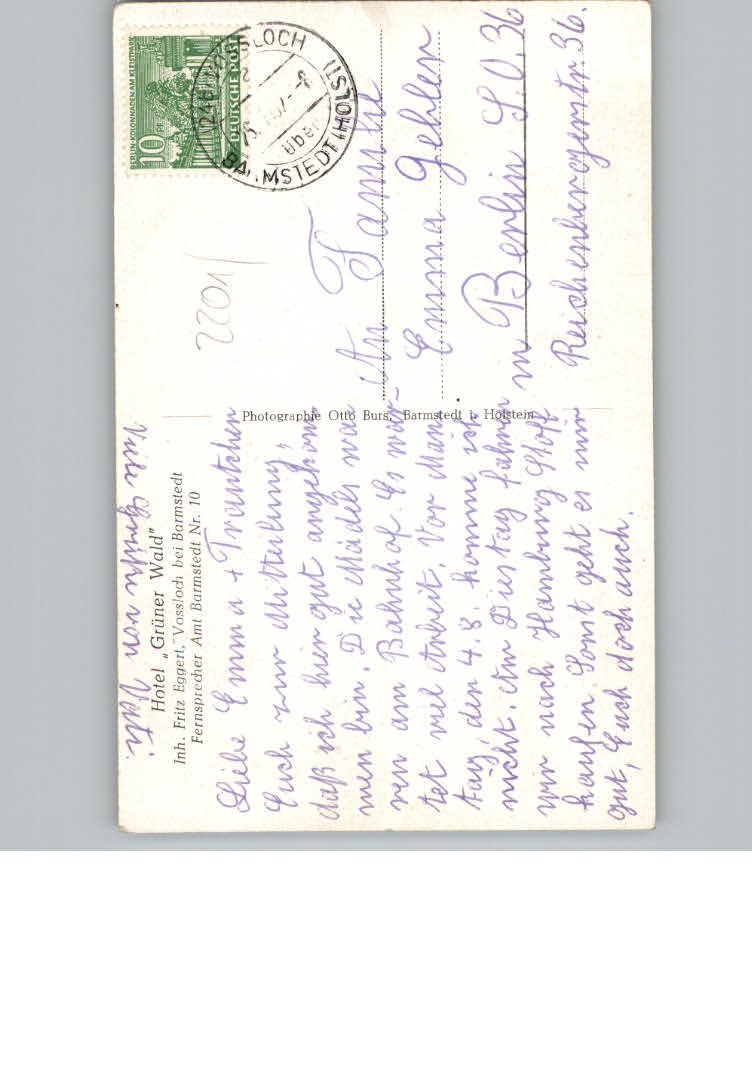 Hotel „Grüner Wald"
Inh. Fritz Eggert, Vossloch bei Barmstedt
Fernsprecher Amt Barmstedt Nr. 10
Liebe Emma + Trautchen
Euch zur Mitteilung,
daß ich hier gut angekom
men bin. Die Mädels wa
ren am Bahnhof. Es war-
tet viel Arbeit. Vor Mon
tag, den 4.8. komme ich
nicht. Am Dienstag fahren
wir nach Hamburg Stoff
kaufen. Sonst geht es mir
gut, Euch doch auch.
Viele Grüße von Vati.
Photographie Otto Burs, Barmstedt i. Holstein
2201
BERLIN-KOLONNADEN AM KLEISTPARK
10
DEUTSCHE POST
VOSSLOCH
BARMSTEDT (HOLST)
An Familie
Emma Gehler
in Berlin S.O. 36
Reichenbergerstr 36.